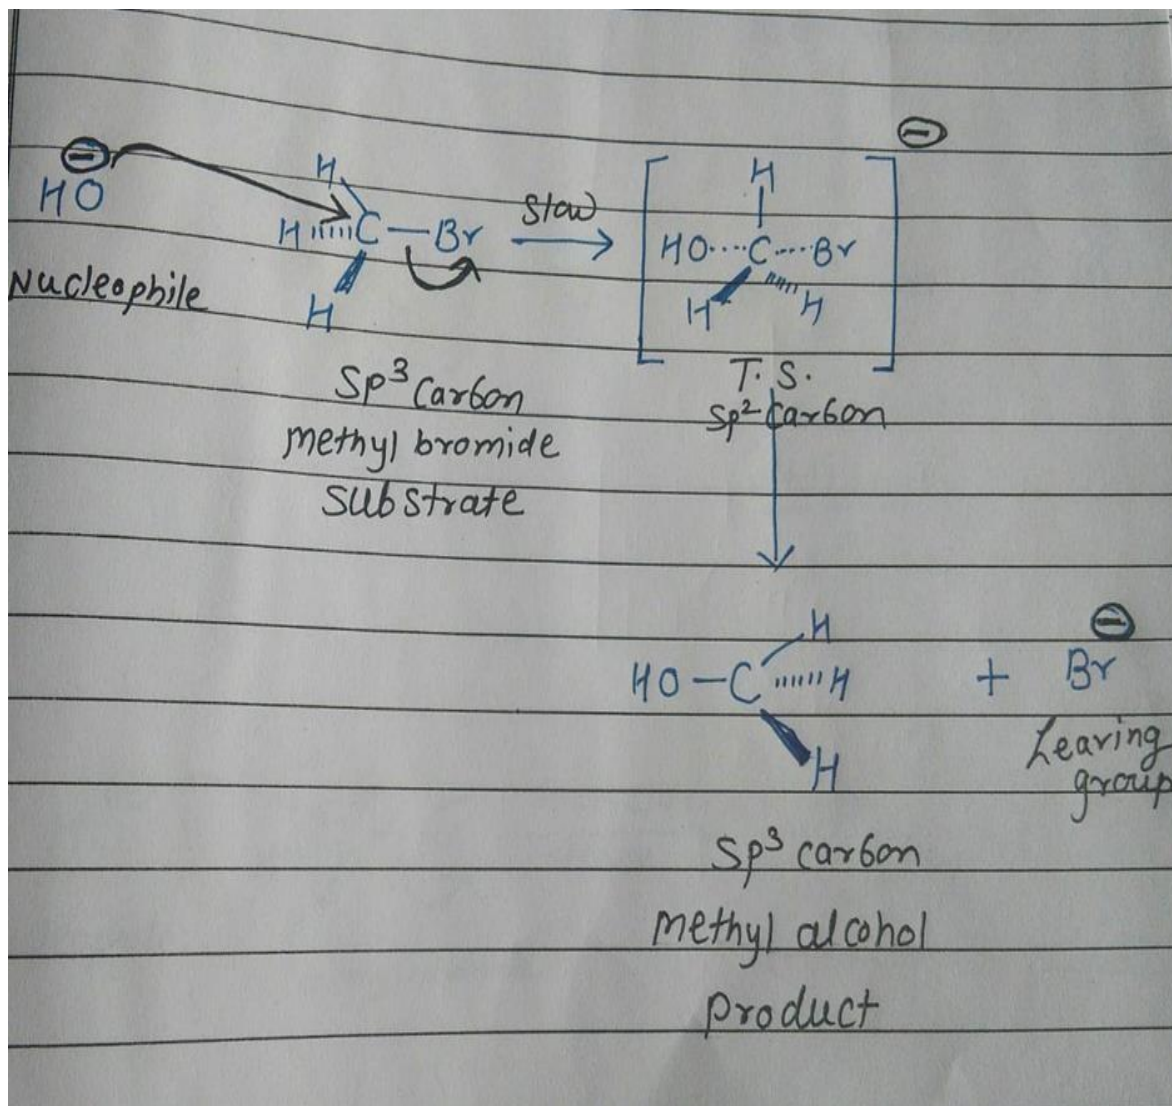 ⊖
HO
Nucleophile
H
H C — Br
H
Slow
⊖
H
HO C Br
H H
Sp³ Carbon
methyl bromide
Substrate
T. S.
Sp² Carbon
H
HO — C H
H
+
⊖
Br
Leaving
group
Sp³ carbon
methyl alcohol
product